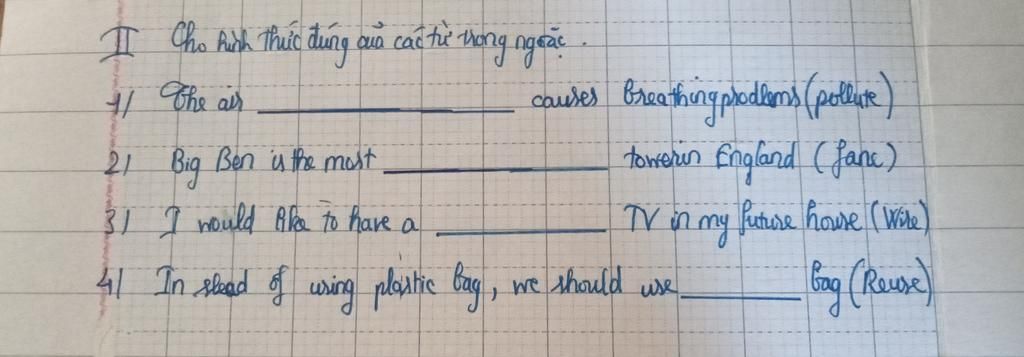 II Cho hình thức đúng quả các từ trong ngoặc.
1/ The air ____________ causes breathing prodlems (pollute)
2/ Big Ben is the most ____________ towerin England (fanc)
3/ I would like to have a __________ TV in my future house (Wire)
4/ In stead of using plastic bag, we should use ________ bag (Reuse)